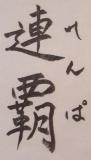 連覇
れんぱ